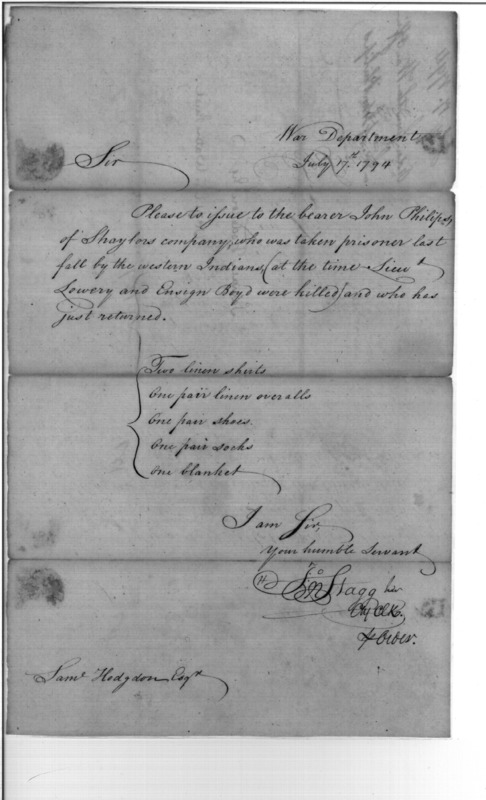 War Department
July 17th 1794
Sir
Please to issue to the bearer John Philips
of Shaylors company, who was taken prisoner last
fall by the western Indians (at the time Lieut
Lowery and Ensign Boyd were killed) and who has
just returned.
Two linen shirts
One pair linen overalls
One pair shoes.
One pair socks
One blanket
I am Sir,
Your humble servant
Jno Stagg Jr
Saml Hodgdon Esqr